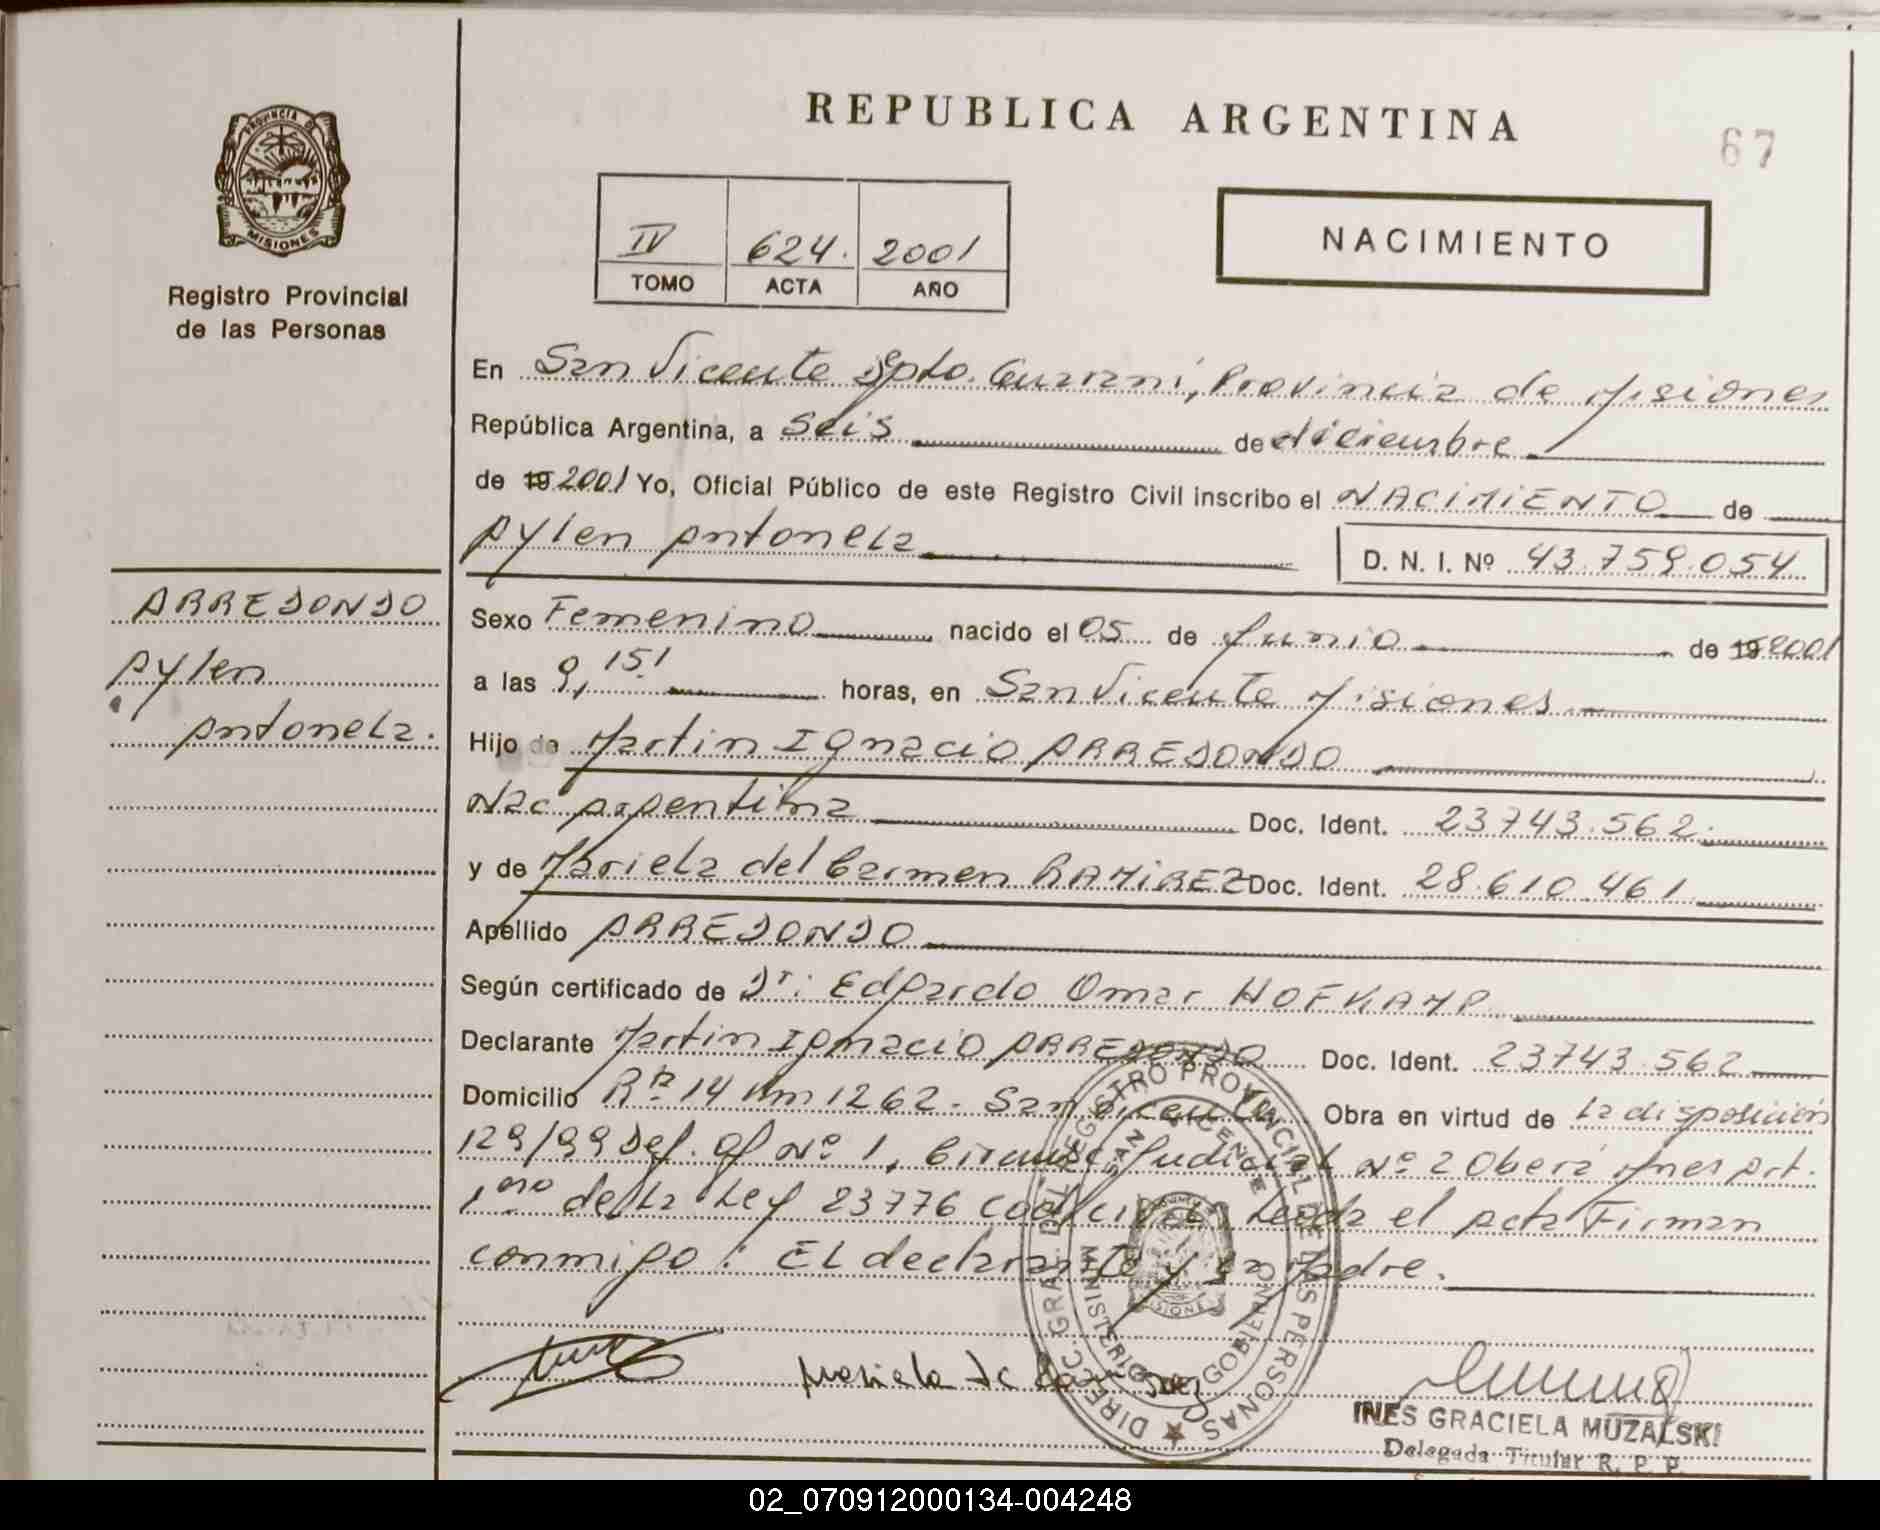 REPUBLICA ARGENTINA
67
PROVINCIA DE
MISIONES
Registro Provincial
de las Personas
IV 624. 2001
TOMO ACTA AÑO
NACIMIENTO
En San Vicente Dpto. Guaraní, Provincia de Misiones
República Argentina, a Seis de diciembre
de 19 2001 Yo, Oficial Público de este Registro Civil inscribo el NACIMIENTO de
Aylen Antonela
D. N. I. Nº 43.759.054
ARREDONDO
Aylen
Antonela.
Sexo Femenino nacido el 05 de Junio de 19 2001
a las 9,15' horas, en San Vicente Misiones
Hijo de Martin Ignacio ARREDONDO
Nac. Argentina Doc. Ident. 23743.562.
y de Mariela del Carmen RAMIREZ Doc. Ident. 28.610.461
Apellido ARREDONDO
Según certificado de Dr: Edgardo Omar HOFKAMP
Declarante Martin Ignacio ARREDONDO Doc. Ident. 23743.562
Domicilio Rta 14 Km 1262. San Vicente Obra en virtud de la disposición
129/99 Def. Of Nº 1, Circunsc. Judicial Nº 2 Oberá Mnes Art.
1ero de la Ley 23776 Cod. Civil Leida el acta Firman
conmigo: El declarante y la Madre.
DIRECC. GRAL. DEL REGISTRO PROVINCIAL DE LAS PERSONAS
SAN VICENTE
MINISTERIO DE GOBIERNO
MISIONES
Mariela
INES GRACIELA MUZALSKI
Delegada Titular R. P. P.
02_070912000134-004248